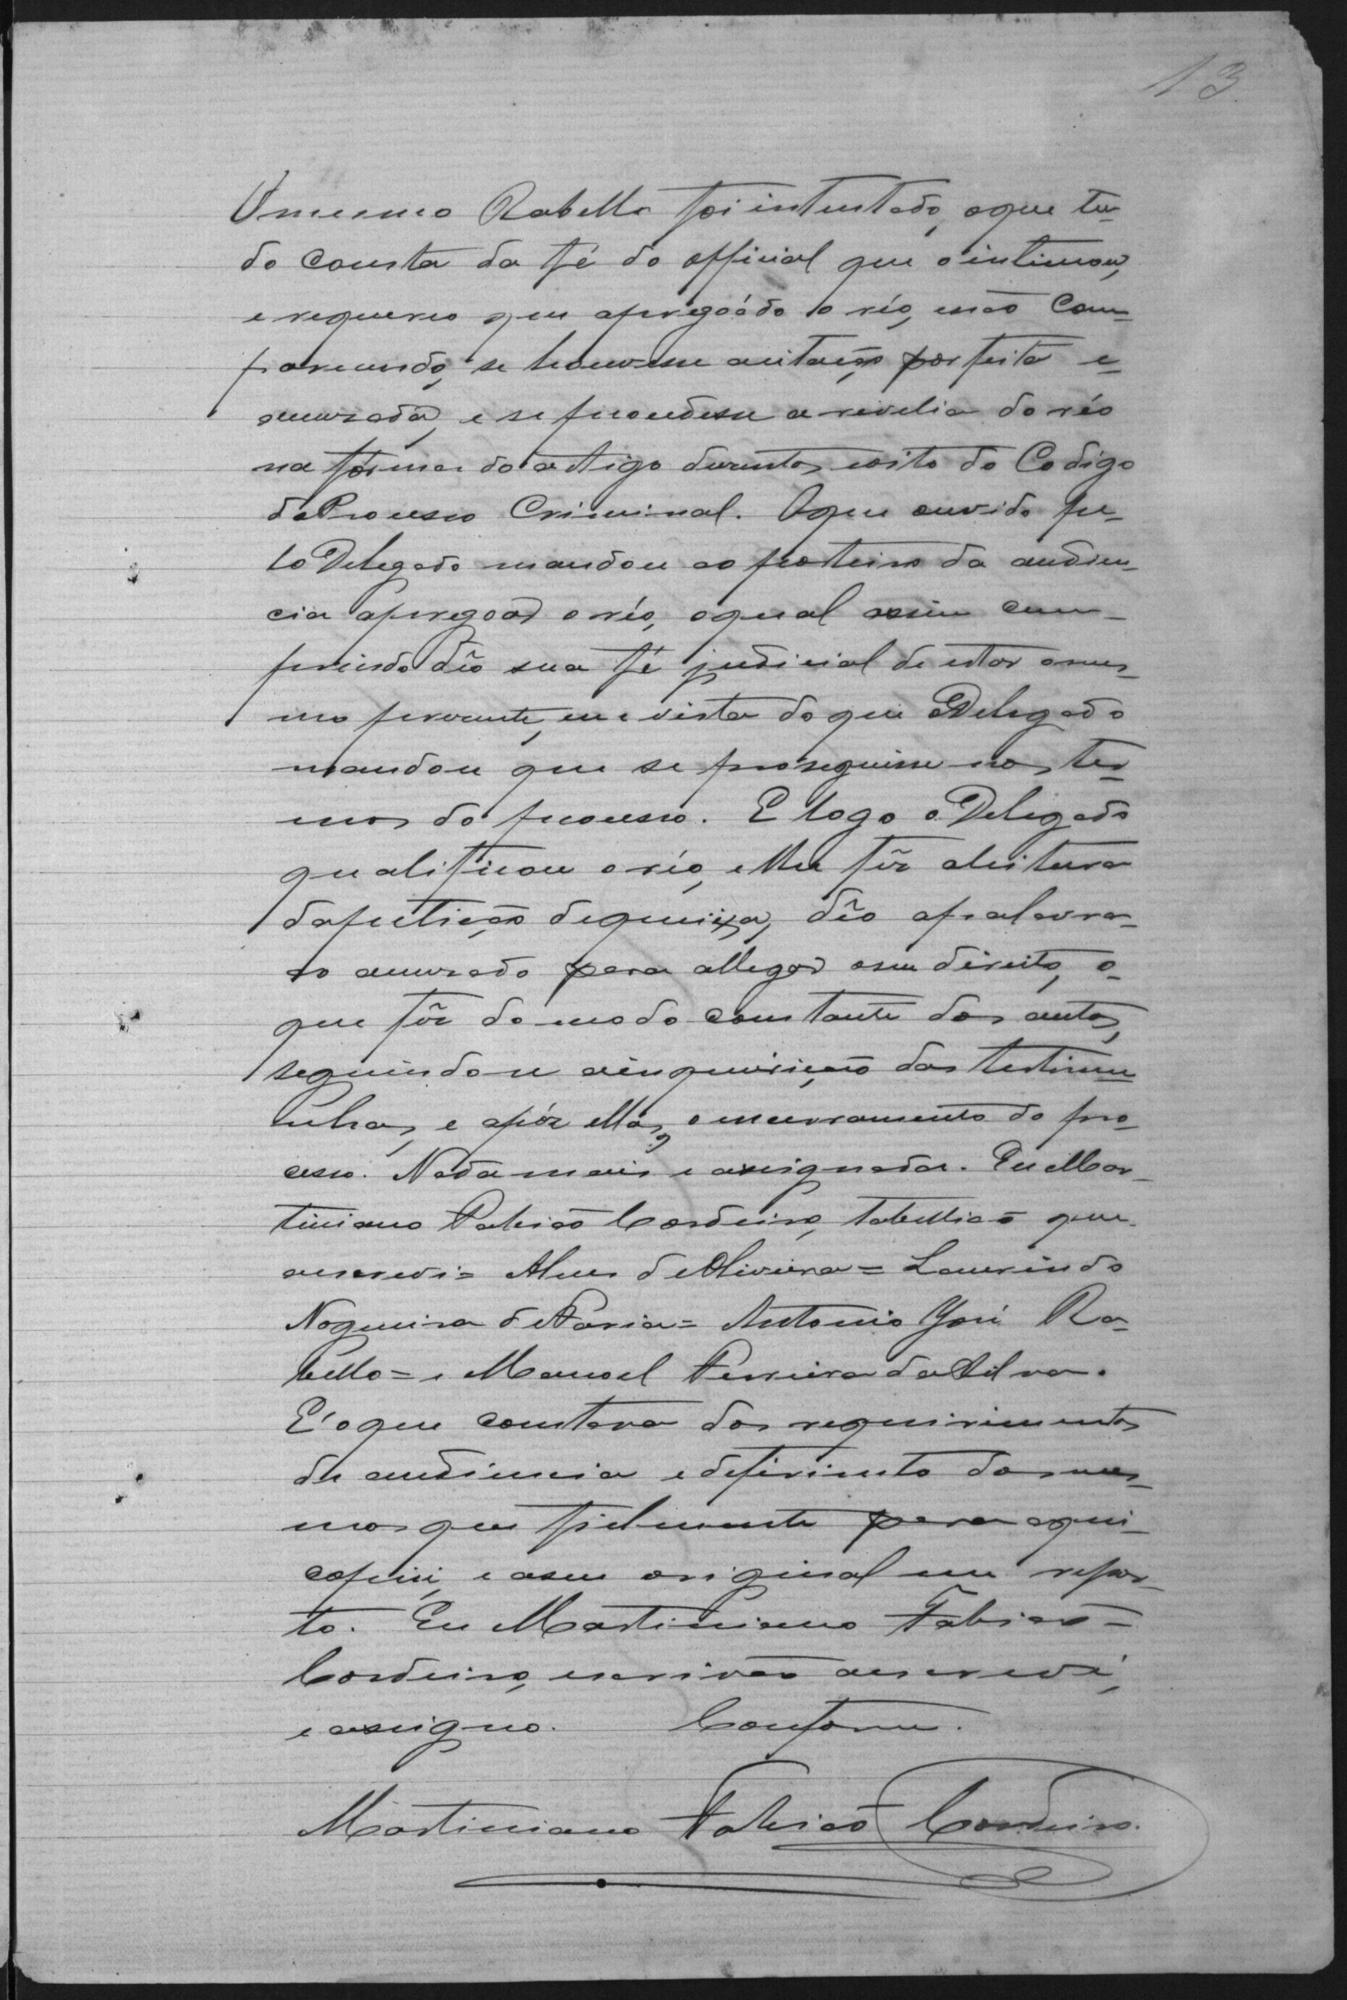 13
O mesmo Rabello foi intentado, o que tu-
do consta da fé do official que o intimou,
e requereo que apregoádo o réo, não com-
parecendo, se houvesse a citação por feita e
accusada, e se procedesse a revelia do réo
na fórma do artigo duzentos e oito do Codigo
do Processo Criminal. O que ouvido pe-
lo Delegado mandou ao porteiro da audien-
cia apregoar o réo, o qual assim cum-
prindo dêo sua fé judicial de estar o mes-
mo perante, em vista do que o Delegado
mandou que se proseguisse nos ter-
mos do processo. E logo o Delegado
qualificou o réo, e lhe fêz a leitura
da petição de queixa, dêo a palavra
ao accusado para allegar o seu direito, o
que fêz do modo constante dos autos,
seguindo-se a inquirição das testemu-
nhas, e apóz ellas, o encerramento do pro-
cesso. Nada mais e assignada. Eu Mar-
tiniano Fabricio Cordeiro, tabellião que
escrevi = Alves de Oliveira = Laurindo
Nogueira de Faria = Antonio José Ra-
bello = e Manoel Ferreira da Silva.
É o que constava dos requirimentos
de audiencia e deferimento dos mes-
mos que fielmente para aqui
copiei, e a seu original me repor-
to. Eu Martiniano Fabricio
Cordeiro, escrivão a escreví,
e assigno. Conforme.
Martiniano Fabricio Cordeiro.